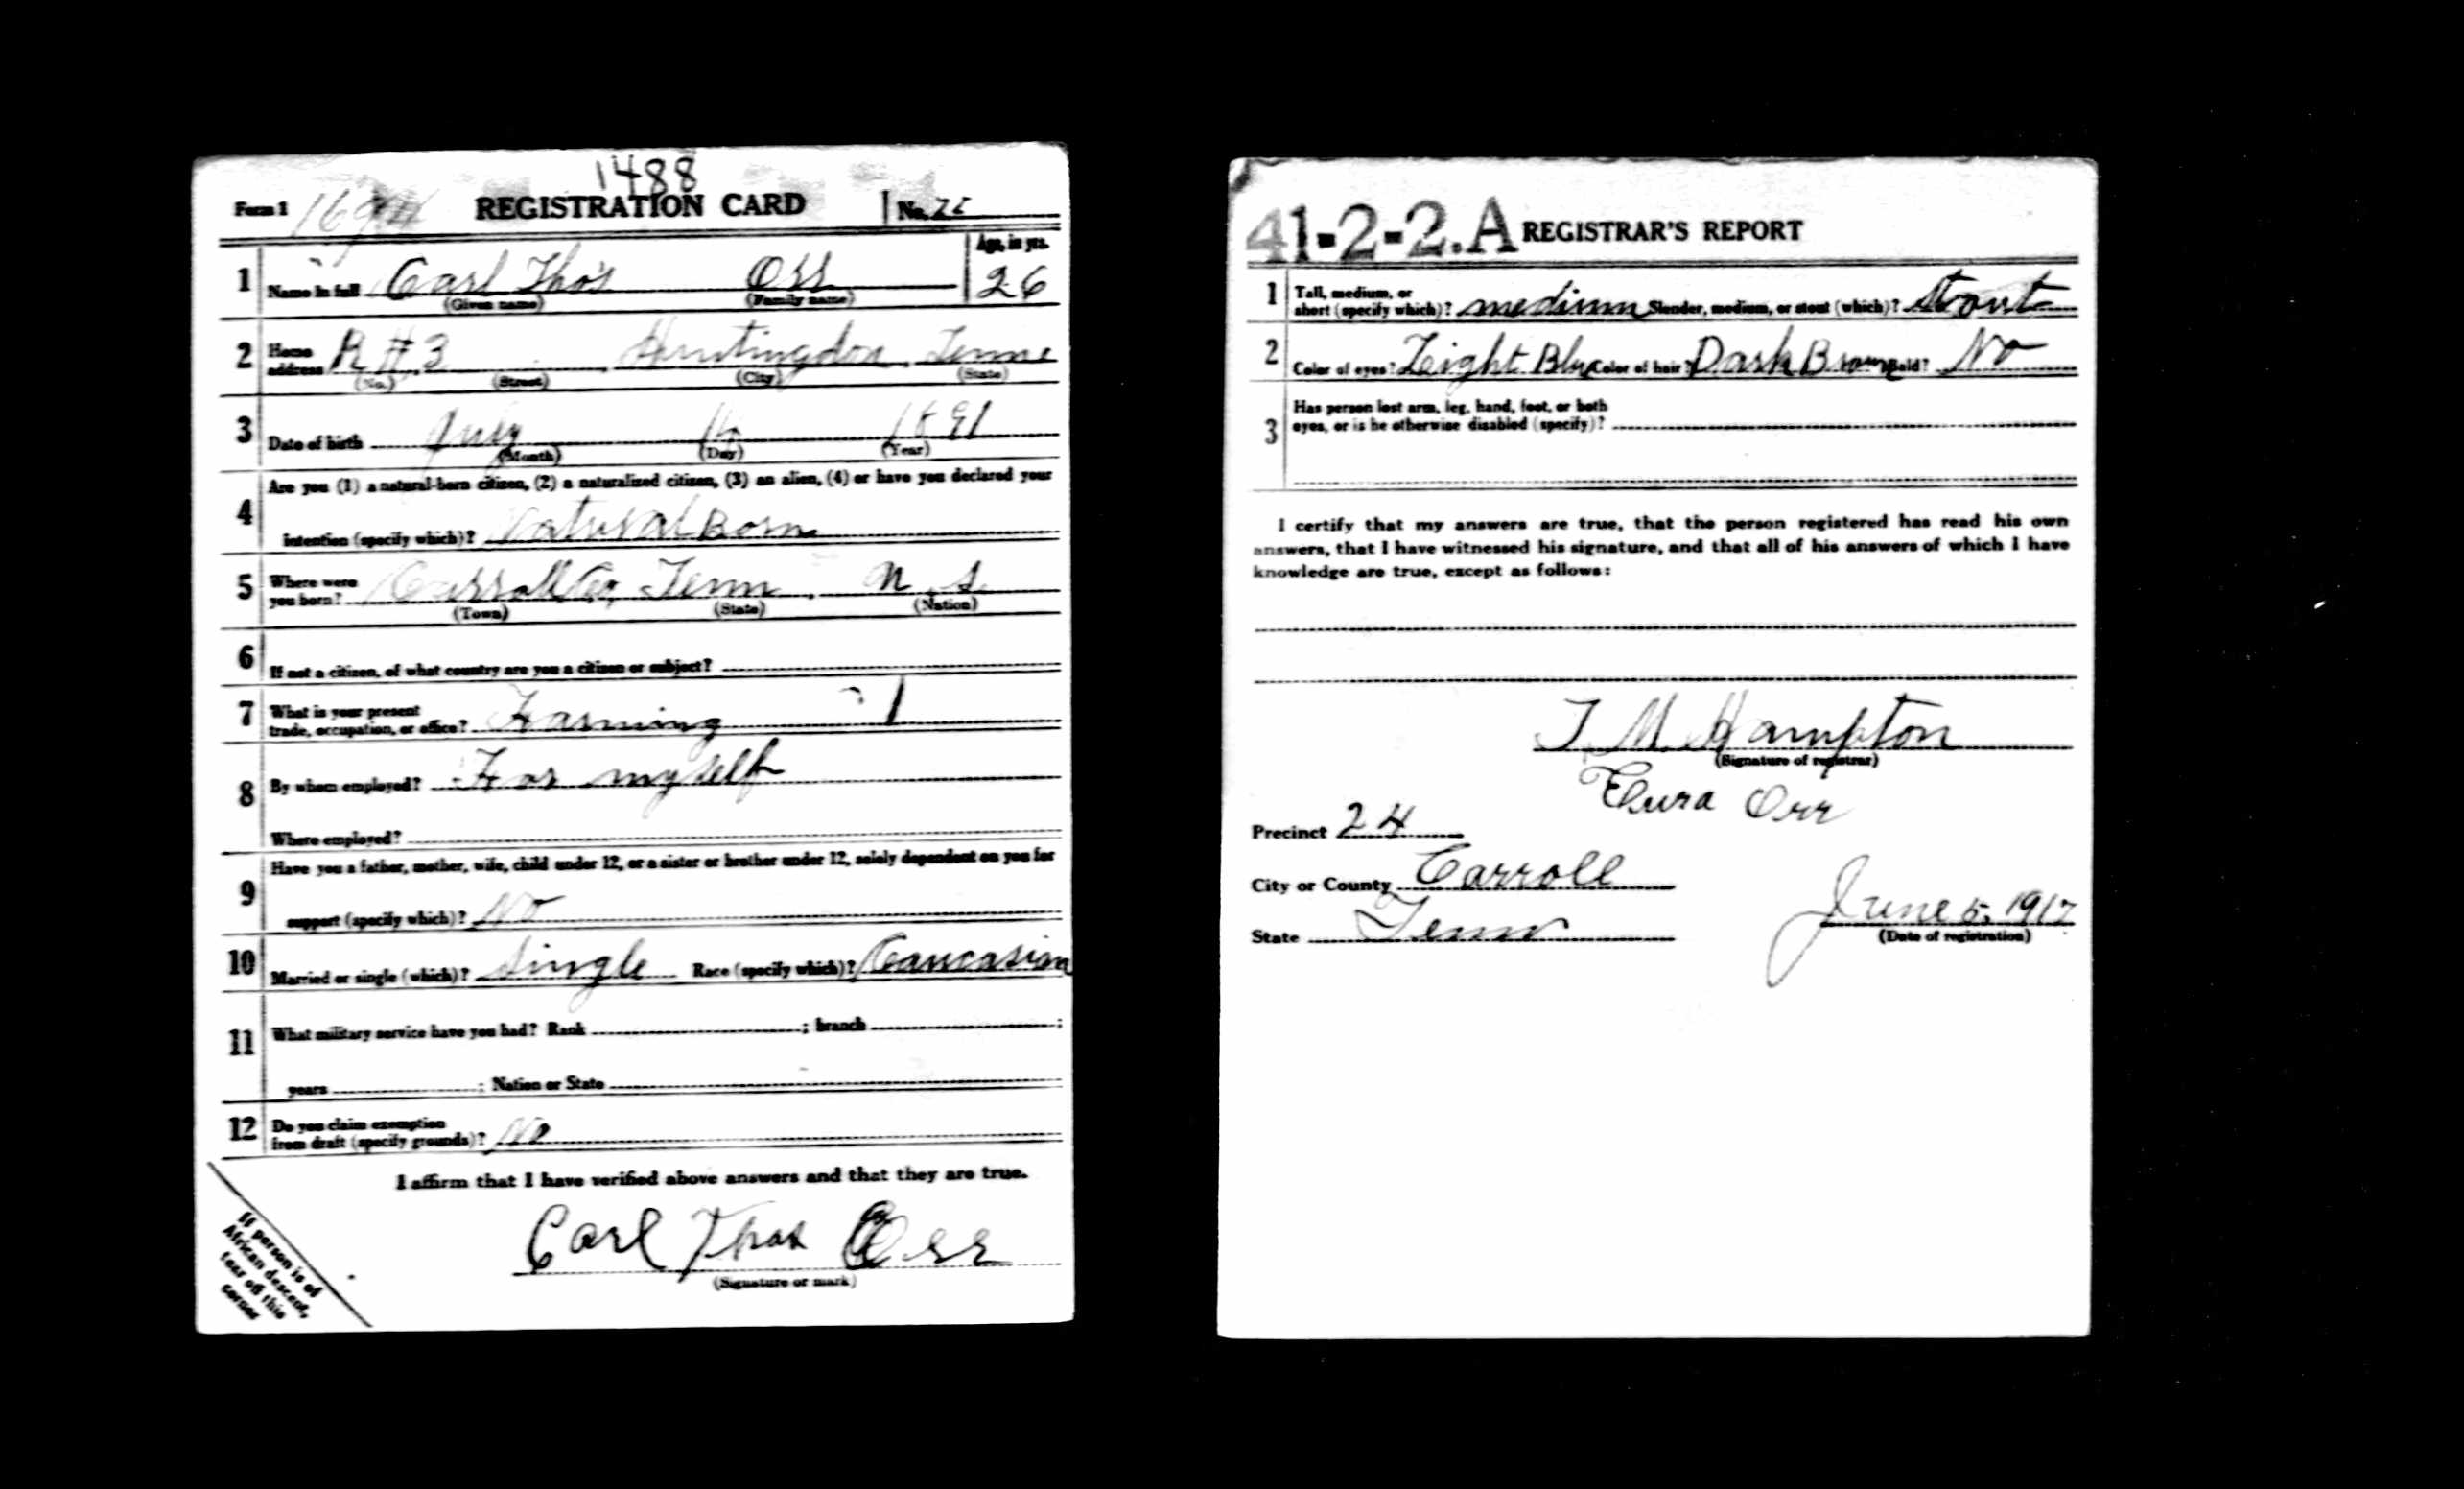 1488
Form 1 REGISTRATION CARD No.
Age, in yrs.
1 Name in full Carl Thos Orr 26
(Given name) (Family name)
2 Home address R # 3 Huntingdon, Tenne
(No.) (Street) (City) (State)
3 Date of birth July 1891
(Month) (Day) (Year)
4 Are you (1) a natural-born citizen, (2) a naturalized citizen, (3) an alien, (4) or have you declared your
intention (specify which)? Natural Born
5 Where were you born? Carroll Co, Tenn, S.
(Town) (State) (Nation)
6 If not a citizen, of what country are you a citizen or subject?
7 What is your present trade, occupation, or office? Farming 1
8 By whom employed? For myself
Where employed?
9 Have you a father, mother, wife, child under 12, or a sister or brother under 12, solely dependent on you for
support (specify which)? No
10 Married or single (which)? Single Race (specify which)? Caucasian
11 What military service have you had? Rank ; branch ;
years ; Nation or State
12 Do you claim exemption from draft (specify grounds)? No
I affirm that I have verified above answers and that they are true.
Carl Thos Orr
(Signature or mark)
If person is of
African descent,
tear off this
corner
41-2-2.A REGISTRAR'S REPORT
1 Tall, medium, or short (specify which)? medium Slender, medium, or stout (which)? Stout
2 Color of eyes? Light Blue Color of hair? Dark Brown Bald? No
3 Has person lost arm, leg, hand, foot, or both
eyes, or is he otherwise disabled (specify)?
I certify that my answers are true, that the person registered has read his own
answers, that I have witnessed his signature, and that all of his answers of which I have
knowledge are true, except as follows:
T. M. Hampton
(Signature of registrar)
Orr
Precinct 24
City or County Carroll
State Tenn June 5, 1917
(Date of registration)